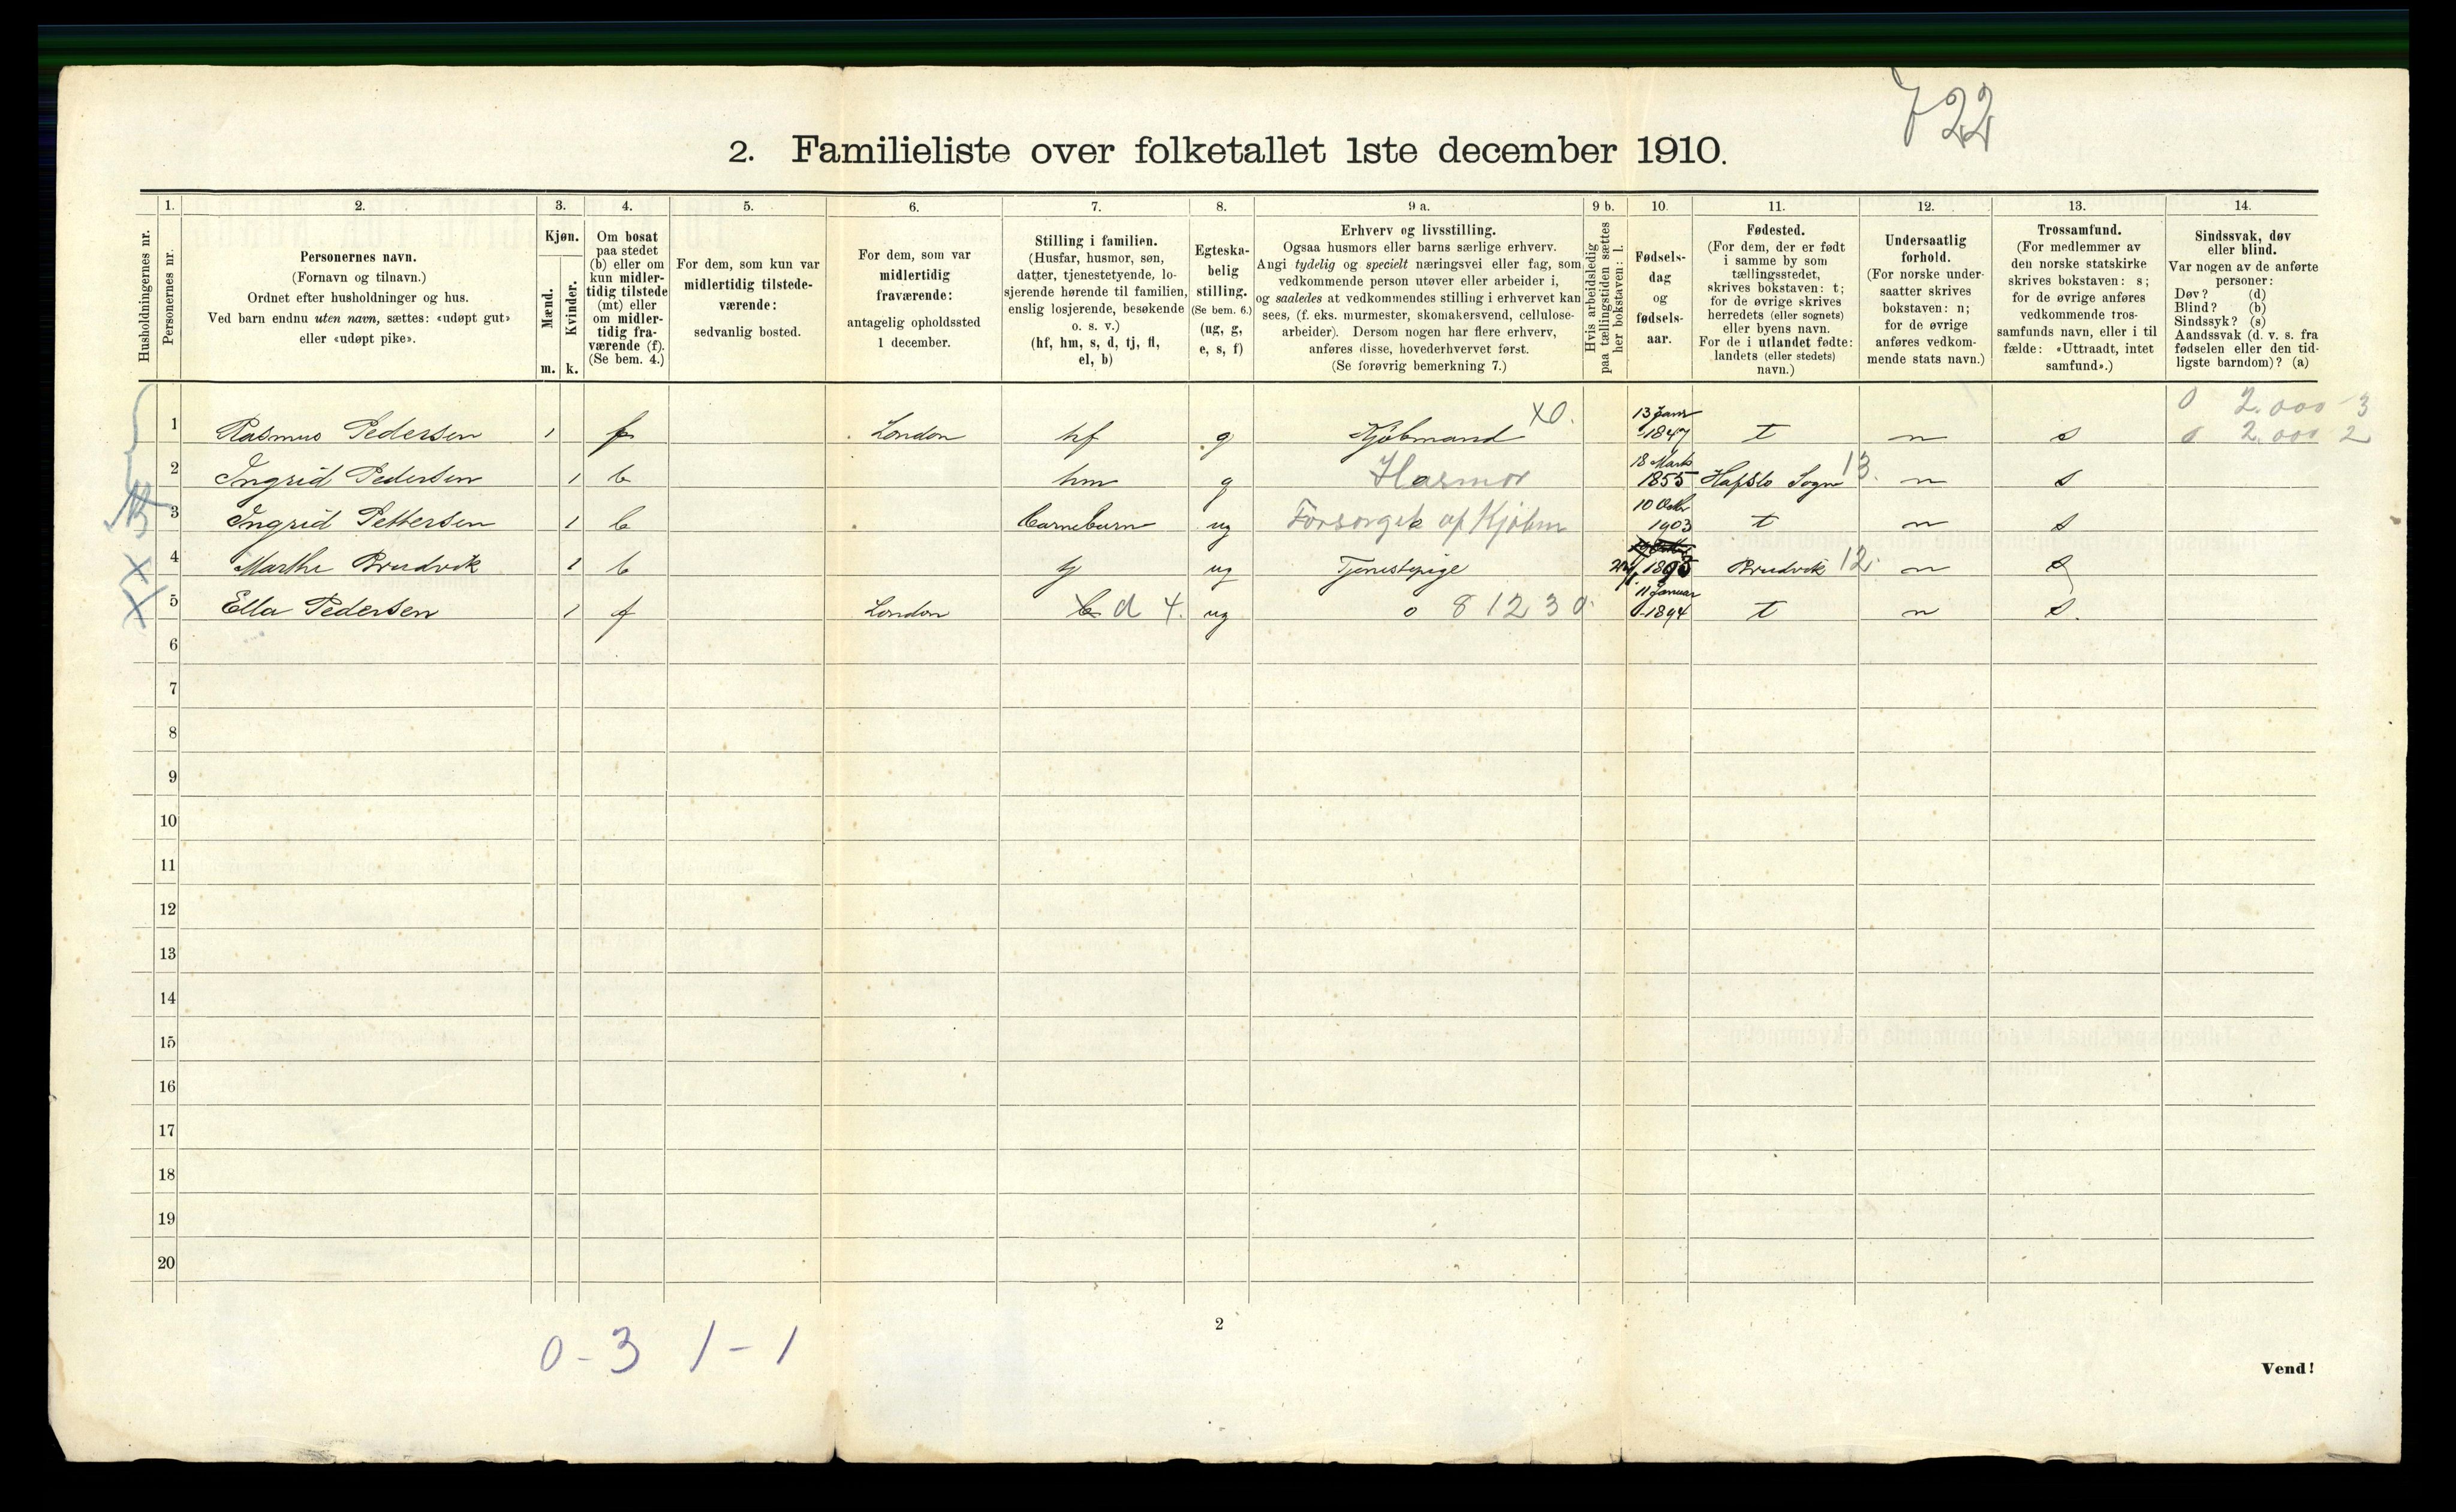 722
2. Familieliste over folketallet 1ste december 1910.
Husholdningernes nr.
1. Personernes nr.
2. Personernes navn.
(Fornavn og tilnavn.)
Ordnet efter husholdninger og hus.
Ved barn endnu uten navn, sættes: «udøpt gut»
eller «udøpt pike».
3. Kjøn.
Mænd. m.
Kvinder. k.
4. Om bosat
paa stedet
(b) eller om
kun midler-
tidig tilstede
(mt) eller
om midler-
tidig fra-
værende (f).
(Se bem. 4.)
5. For dem, som kun var
midlertidig tilstede-
værende:
sedvanlig bosted.
6. For dem, som var
midlertidig
fraværende:
antagelig opholdssted
1 december.
7. Stilling i familien.
(Husfar, husmor, søn,
datter, tjenestetyende, lo-
sjerende hørende til familien,
enslig losjerende, besøkende
o. s. v.)
(hf, hm, s, d, tj, fl,
el, b)
8. Egteska-
belig
stilling.
(Se bem. 6.)
(ug, g,
e, s, f)
9 a. Erhverv og livsstilling.
Ogsaa husmors eller barns særlige erhverv.
Angi tydelig og specielt næringsvei eller fag, som
vedkommende person utøver eller arbeider i,
og saaledes at vedkommendes stilling i erhvervet kan
sees, (f. eks. murmester, skomakersvend, cellulose-
arbeider). Dersom nogen har flere erhverv,
anføres disse, hovederhvervet først.
(Se forøvrig bemerkning 7.)
9 b. Hvis arbeidsledig
paa tællingstiden sættes
her bokstaven: l.
10. Fødsels-
dag
og
fødsels-
aar.
11. Fødested.
(For dem, der er født
i samme by som
tællingsstedet,
skrives bokstaven: t;
for de øvrige skrives
herredets (eller sognets)
eller byens navn.
For de i utlandet fødte:
landets (eller stedets)
navn.)
12. Undersaatlig
forhold.
(For norske under-
saatter skrives
bokstaven: n;
for de øvrige
anføres vedkom-
mende stats navn.)
13. Trossamfund.
(For medlemmer av
den norske statskirke
skrives bokstaven: s;
for de øvrige anføres
vedkommende tros-
samfunds navn, eller i til
fælde: «Uttraadt, intet
samfund».)
14. Sindssvak, døv
eller blind.
Var nogen av de anførte
personer:
Døv? (d)
Blind? (b)
Sindssyk? (s)
Aandssvak (d. v. s. fra
fødselen eller den tid-
ligste barndom)? (a)
0 2.000 3
1 Rasmus Pedersen 1 f London hf g Kjøbmand X0. 13 Janr 1847 t n s 0 2.000 2
2 Ingrid Pedersen 1 b hm g Husmor 18 Marts 1855 Hafslo Sogn 13. n s
3 Ingrid Pettersen 1 b barnebarn ug Forsørget af Kjøbm 10 Octbr 1903 t n s
4 Marthe Brudvik 1 b tj ug Tjenestepige Brudvik 12. n s
5 Ella Pedersen 1 f London b d 4. ug 0 8 12 3 0 11 Januar 1894 t n s.
6
7
8
9
10
11
12
13
14
15
16
17
18
19
20
0 - 3 1 - 1
2
Vend!